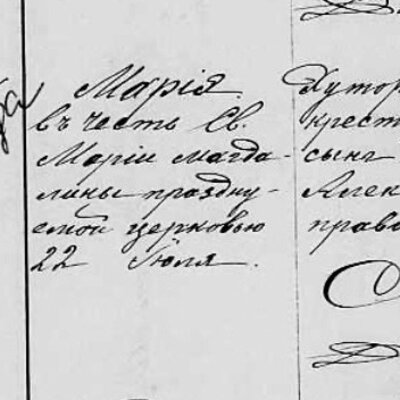 Марія
въ честь Св.
Маріи Магда-
лины праздну-
емой церковью
22 Іюля.
Хутор
крест
сынъ
Алек
право